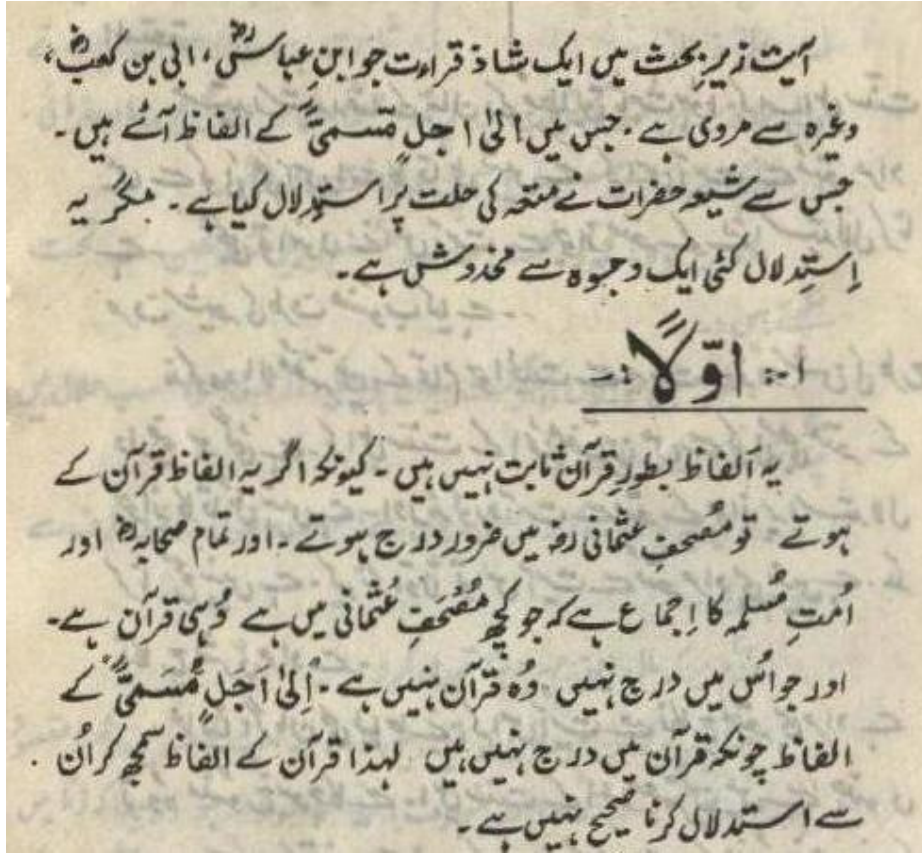 آیت زیرِ بحث میں ایک شاذ قراءت جو ابنِ عباسؓ، ابی بن کعبؓ،
وغیرہ سے مروی ہے۔ جس میں الیٰ اجلٍ مسمیًّ کے الفاظ آئے ہیں۔
جس سے شیعہ حضرات نے متعہ کی حلت پر استدلال کیا ہے۔ مگر یہ
اِستِدلال کئی ایک وجوہ سے مخدوش ہے۔
۱:- اوّلاً :-
یہ اَلفاظ بطورِ قرآن ثابت نہیں ہیں۔ کیونکہ اگر یہ الفاظ قرآن کے
ہوتے تو مُصحفِ عثمانی رضہ میں ضرور درج ہوتے۔ اور تمام صحابہؓ اور
اُمتِ مُسلمہ کا اِجماع ہے کہ جو کچھ مُصْحَفِ عُثمانی میں ہے وُہی قرآن ہے۔
اور جو اُس میں درج نہیں وُہ قرآن نہیں ہے۔ اِلیٰ اَجَلٍ مُّسَمیًّ کے
الفاظ چونکہ قرآن میں درج نہیں ہیں لہذا قرآن کے الفاظ سمجھ کر اُن
سے استدلال کرنا صحیح نہیں ہے۔